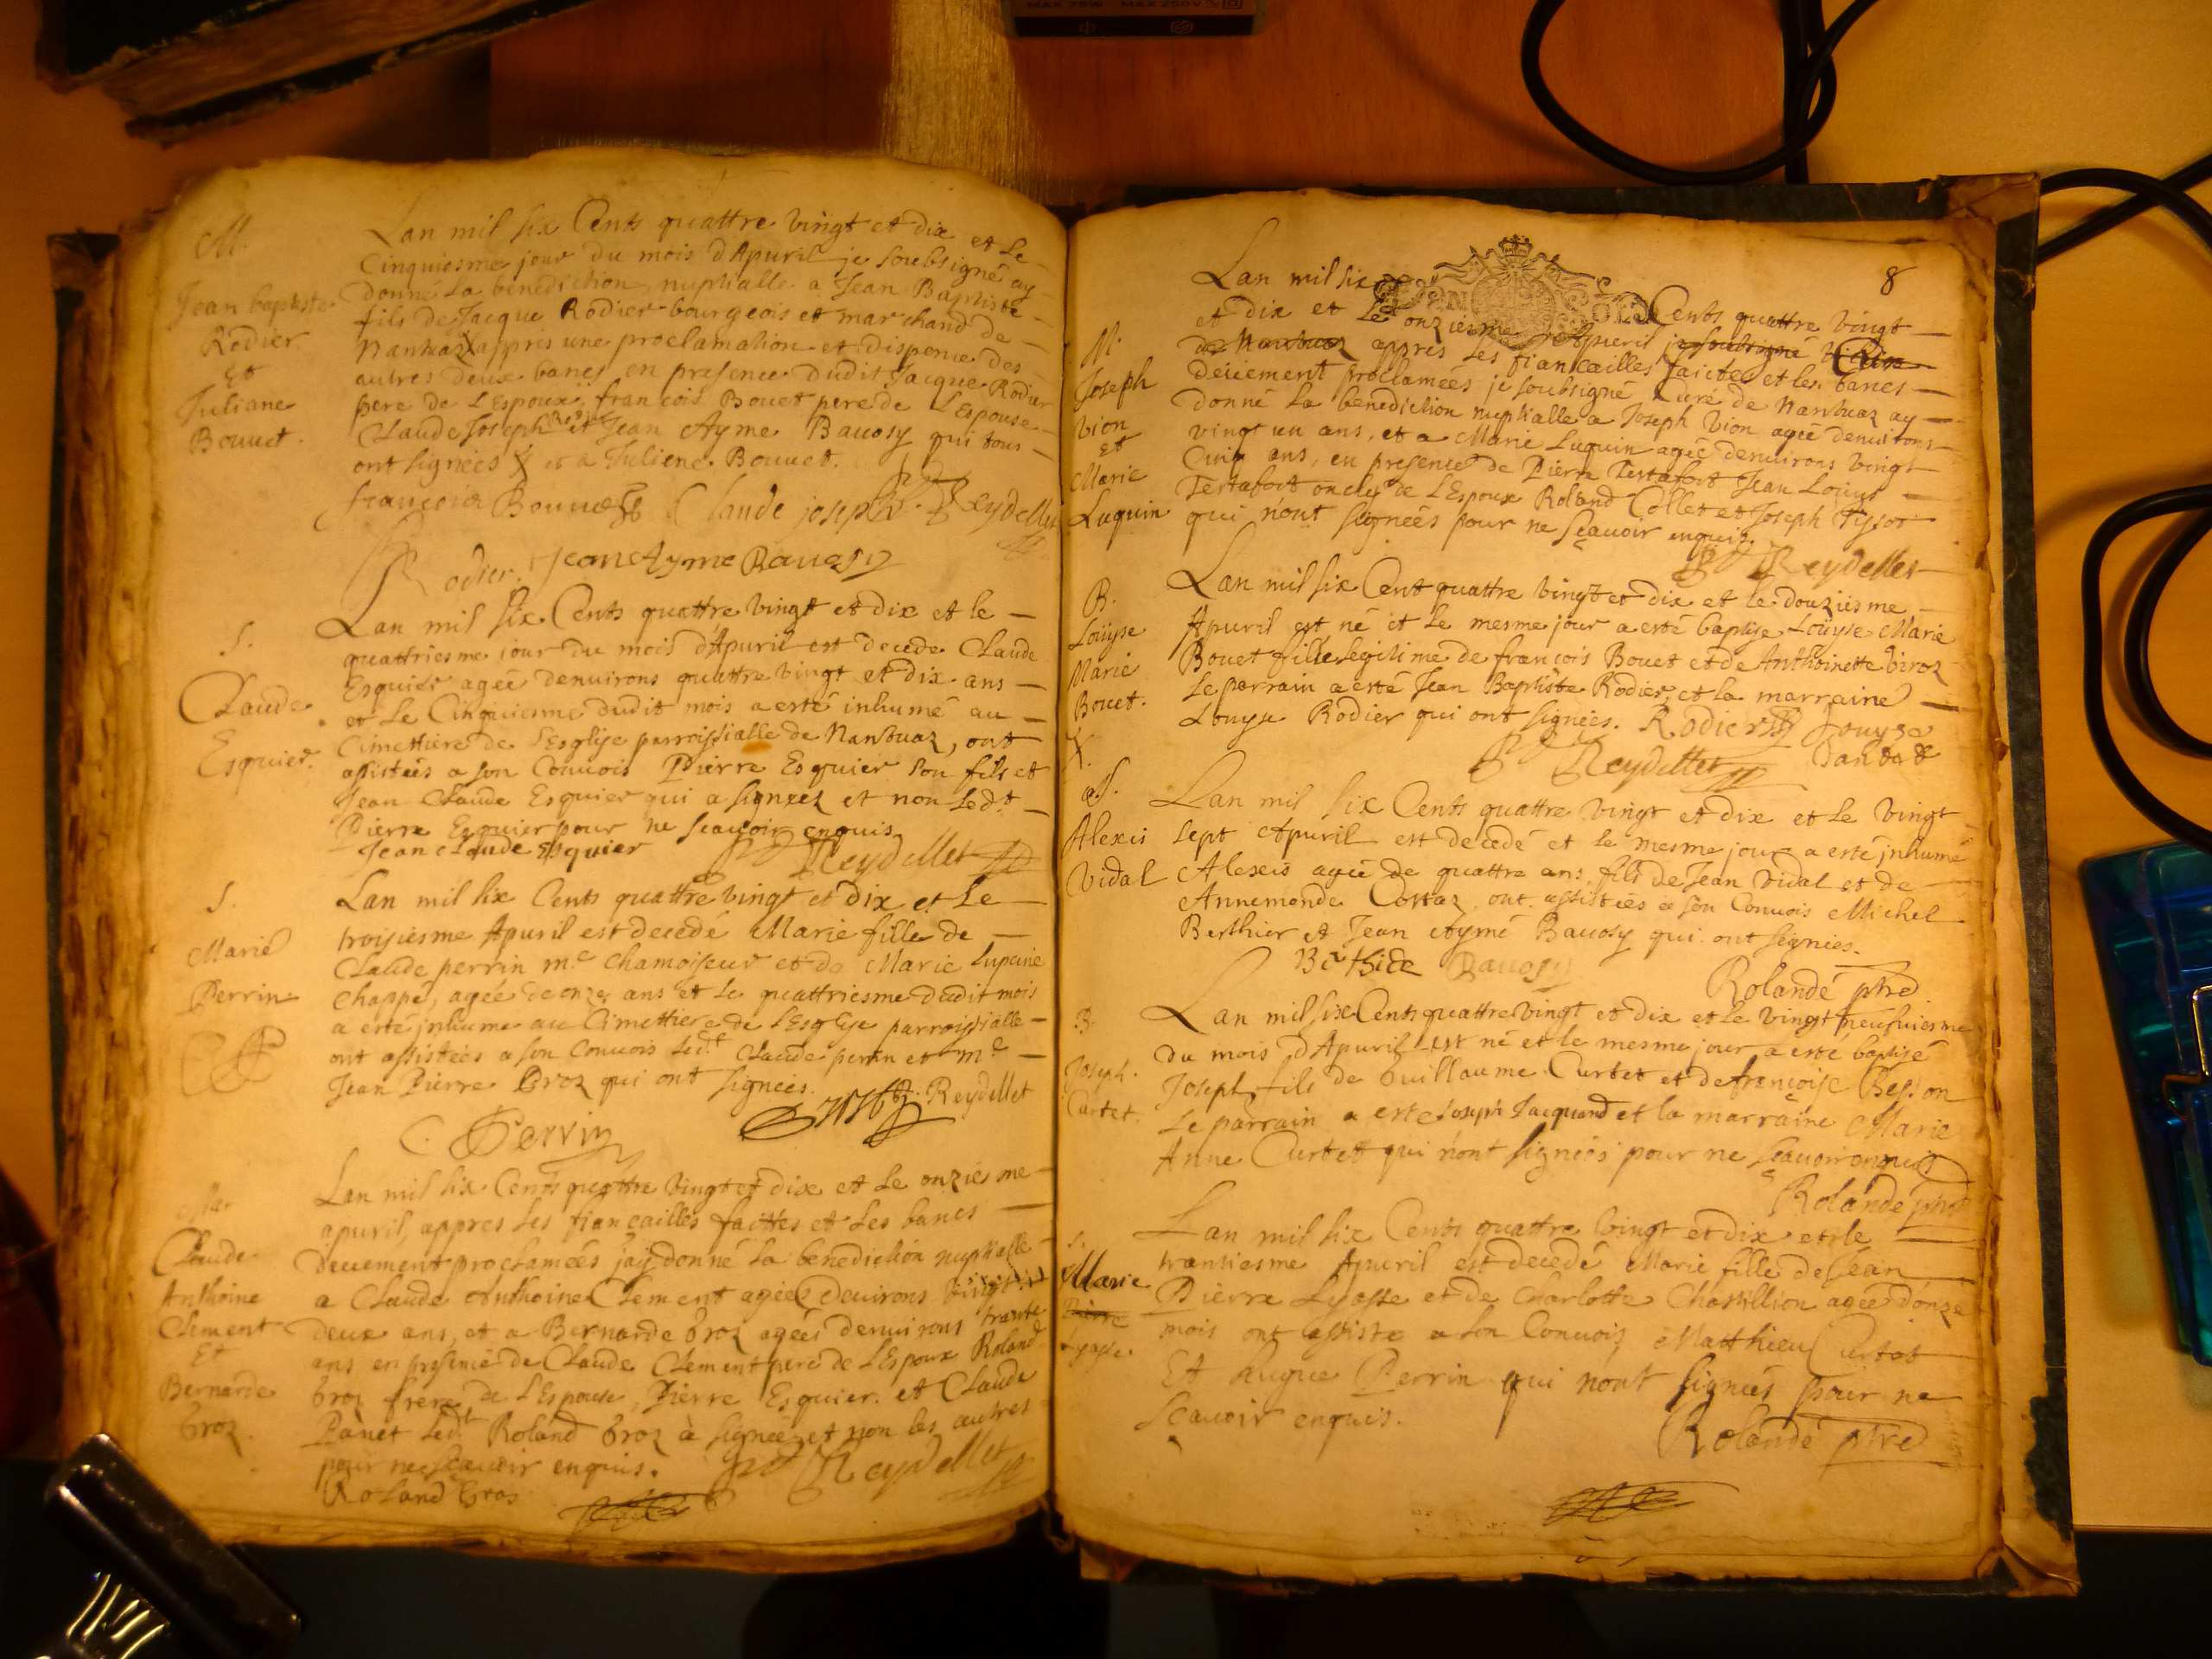 MAX 75W MAX 250V
M.
Jean baptiste
Rodier
Et
Juliane
Bouuet.
Lan mil six Cents quattre vingt et dix et Le
Cinquiesme jour du mois dApuril je soubsigné ay
donné La benediction nuptialle a Jean Baptiste
fils de Jacque Rodier bourgeois et marchand de
Nantuaz appres une proclamation et dispense des
autres deux bancs en presence dudit Jacque Rodier
pere de L'Espoux, francois Bouet pere de L'Espouse
Claude Joseph et Jean Ayme Bauosy qui tous
ont signées X et a Juliene Bouuet.
francois Bouuet Claude joseph Reydellet
Rodier. Jean Ayme Bauosy
S.
Claude
Esquier.
Lan mil six Cents quattre vingt et dix et le
quattriesme jour du mois dApuril est decede Claude
Esquier agée denuirons quattre vingt et dix ans
et Le Cinquiesme dudit mois a esté inhumé au
Cimettiere de L'esglise parroissialle de Nantuaz, ont
assistées a son Conuois Pierre Esquier son fils et
Jean Claude Esquier qui a signéez et non Ledt
Pierre Esquier pour ne scauoir enquis
Jean Claude esquier Reydellet
S.
Marie
Perrin
Lan mil six Cents quattre vingt et dix et Le
troisiesme Apuril est decedé Marie fille de
Claude perrin me chamoiseur et de Marie lupcine
Chappé, agée de onze ans et Le quattriesme dudit mois
a esté jnhume au Cimettiere de L'Esglise parroissialle
ont assistées a son Conuois Ledt Claude perrin et me
Jean Pierre Broz qui ont signées.
Reydellet
C. Perrin
Claude
Anthoine
Clement
Et
Bernarde
Broz.
Lan mil six Cents quattre vingt et dix et Le onziesme
apuril, appres Les fiancailles faittes et Les bancs
deuement proclamées jay donné La benediction nuptialle
a Claude Anthoine Clement agées denuirons vingt
deux ans, et a Bernarde Broz agées denuirons trante
ans en presence de Claude Clement pere de L'Espoux Roland
Broz frere de L'Espouse, Pierre Esquier et Claude
Panet Ledt Roland Broz à signée et non les autres
pour ne scauoir enquis. Reydellet
Roland Gros
8
M.
Joseph
Vion
et
Marie
Luquin
Lan mil six Cents quattre vingt
et dix et Le onziesme Apueril je soubsigné
de Nantuaz appres Les fiancailles faictes et les bancs
deüement proclamées je soubsigné Curé de Nantuaz ay
donné La benediction nuptialle a Joseph Vion agée denuirons
vingt un ans, et a Marie Luquin agée denuirons vingt
Cinq ans, en presence de Pierre Testafort Jean Loüys
Testafort oncles de L'Espoux Roland Collet et Joseph Tissot
qui n'ont signées pour ne scauoir enquis.
Reydellet
B.
Loüyse
Marie
Bouet.
X.
Lan mil six Cent quattre vingt et dix et le douziesme
Apuril est né et Le mesme jour a esté baptise Loüyse Marie
Bouet fille legitime de francois Bouet et de Anthoinette Viroz
Le parrain a esté Jean Baptiste Rodier et la marraine
Louyse Rodier qui ont signées. Rodier Louyse
Reydellet
S.
Alexis
Vidal
Lan mil six Cents quattre vingt et dix et Le vingt
sept Apuril est decedé et le mesme jour a esté jnhumé
Alexis agée de quattre ans fils de Jean Vidal et de
Annemonde Costaz ont assistées a son Conuois Michel
Berthier et Jean Aymé Bauosy qui ont signées.
Bauosy
Rolandé ptre
B.
Joseph.
Curtet.
Lan mil six Cents quattre vingt et dix et Le vingt neufuiesme
du mois dApuril est né et le mesme jour a esté baptisé
Joseph, fils de Guillaume Curtet et de francoise Besson
Le parrain a esté Joseph Jacquand et la marraine Marie
Anne Curtet qui n'ont signées pour ne scauoir enquis
Rolandé ptre
S.
Marie
Pierre
Lyasse.
Lan mil six Cents quattre vingt et dix et le
trantiesme Apuril est decedé Marie fille de Jean
Pierre Lyasse et de Charlotte Chastillion agée d'onze
mois ont assiste a son Conuois Matthieu Curtet
Et hugue Perrin qui n'ont signées pour ne
scauoir enquis.
Rolandé ptre